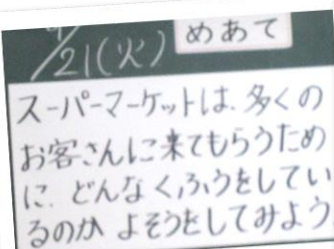 /21(火) めあて
スーパーマーケットは、多くの
お客さんに来てもらうため
に、どんなくふうをしてい
るのか よそうをしてみよう